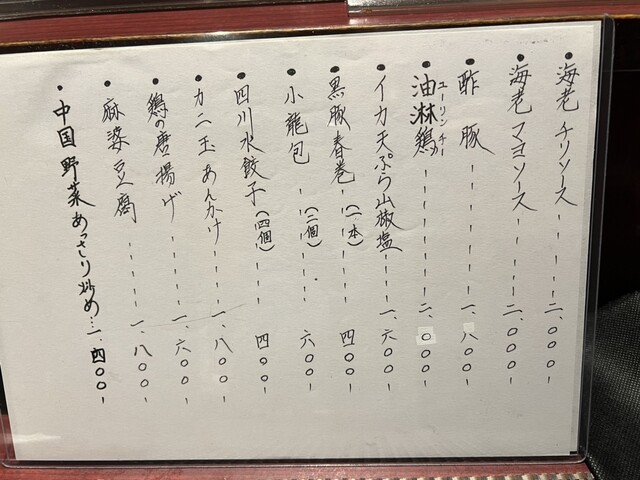 ・海老チリソース------二、〇〇〇-
・海老マヨソース-----二、〇〇〇-
・酢豚------一、八〇〇-
・油淋鶏------二、〇〇〇-
ユーリンチー
・イカ天ぷら山椒塩--一、六〇〇-
・黒豚春巻-(一本)--四〇〇-
・小龍包--(二個)--六〇〇-
・四川水餃子(四個)---四〇〇-
・カニ玉あんかけ-----一、八〇〇-
・鶏の唐揚げ-----一、六〇〇-
・麻婆豆腐------一、八〇〇-
・中国野菜あっさり炒め…一、四〇〇-